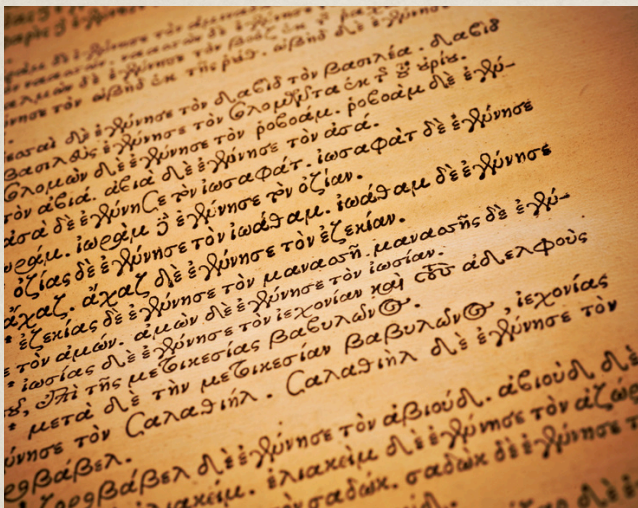 ὲ ἐγέννησε τὸν
σαλμὼν δὲ ἐγέννησε τὸν βοὸζ ἐκ τ ῥαχ
ησε τὸν ὠβὴδ ἐκ τῆς ῥοὺθ. ὠβὴδ δὲ ἐγέννησε
ἰεσσαὶ δὲ ἐγέννησε τὸν δαβὶδ τὸν βασιλέα. δαβὶδ
βασιλεὺς ἐγέννησε τὸν σολομῶντα ἐκ τ τοῦ οὐρίου.
σολομὼν δὲ ἐγέννησε τὸν ῥοβοάμ. ῥοβοὰμ δὲ ἐγέν-
τὸν ἀβιά. ἀβιὰ δὲ ἐγέννησε τὸν ἀσά.
ἀσὰ δὲ ἐγέννησε τὸν ἰωσαφάτ. ἰωσαφὰτ δὲ ἐγέννησε
ωράμ. ἰωρὰμ δὲ ἐγέννησε τὸν ὀζίαν.
ὀζίας δὲ ἐγέννησε τὸν ἰωάθαμ. ἰωάθαμ δὲ ἐγέννησε
ἄχαζ. ἄχαζ δὲ ἐγέννησε τὸν ἐζεκίαν.
ἐζεκίας δὲ ἐγέννησε τὸν μανασσῆ. μανασσῆς δὲ ἐγέν-
ε τὸν ἀμών. ἀμὼν δὲ ἐγέννησε τὸν ἰωσίαν.
ἰωσίας δὲ ἐγέννησε τὸν ἰεχονίαν καὶ τοὺς ἀδελφοὺς
οῦ, ἐπὶ τῆς μετοικεσίας βαβυλῶνος.
μετὰ δὲ τὴν μετοικεσίαν βαβυλῶνος, ἰεχονίας
έννησε τὸν σαλαθιήλ. σαλαθιὴλ δὲ ἐγέννησε τὸν
οροβάβελ.
ζοροβάβελ δὲ ἐγέννησε τὸν ἀβιούδ. ἀβιοὺδ δὲ
λιακείμ. ἐλιακεὶμ δὲ ἐγέννησε τὸν ἀζώρ
τὸν σαδώκ. σαδὼκ δὲ ἐγέννησε τ